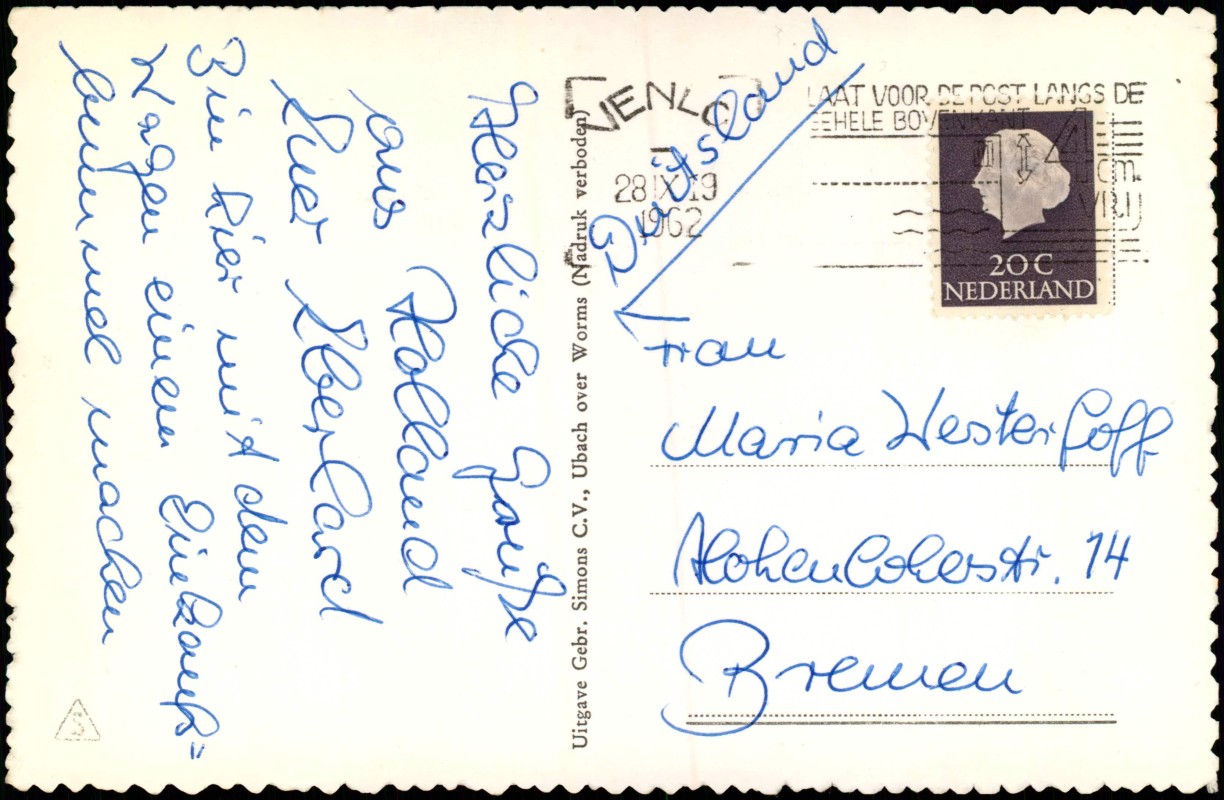 Herzliche Grüße
aus Holland
Euer Eberhard
Bin hier mit dem
Wagen einen Einkaufs=
bummel machen
Uitgave Gebr. Simons C.V., Ubach over Worms (Nadruk verboden)
VENLO
28 IX 19
1962
LAAT VOOR DE POST LANGS DE
GEHELE BOVENKANT
4 cm.
VRIJ
20 C
NEDERLAND
Duitsland
Frau
Maria Westerhoff
Hohenlohestr. 14
Bremen
S